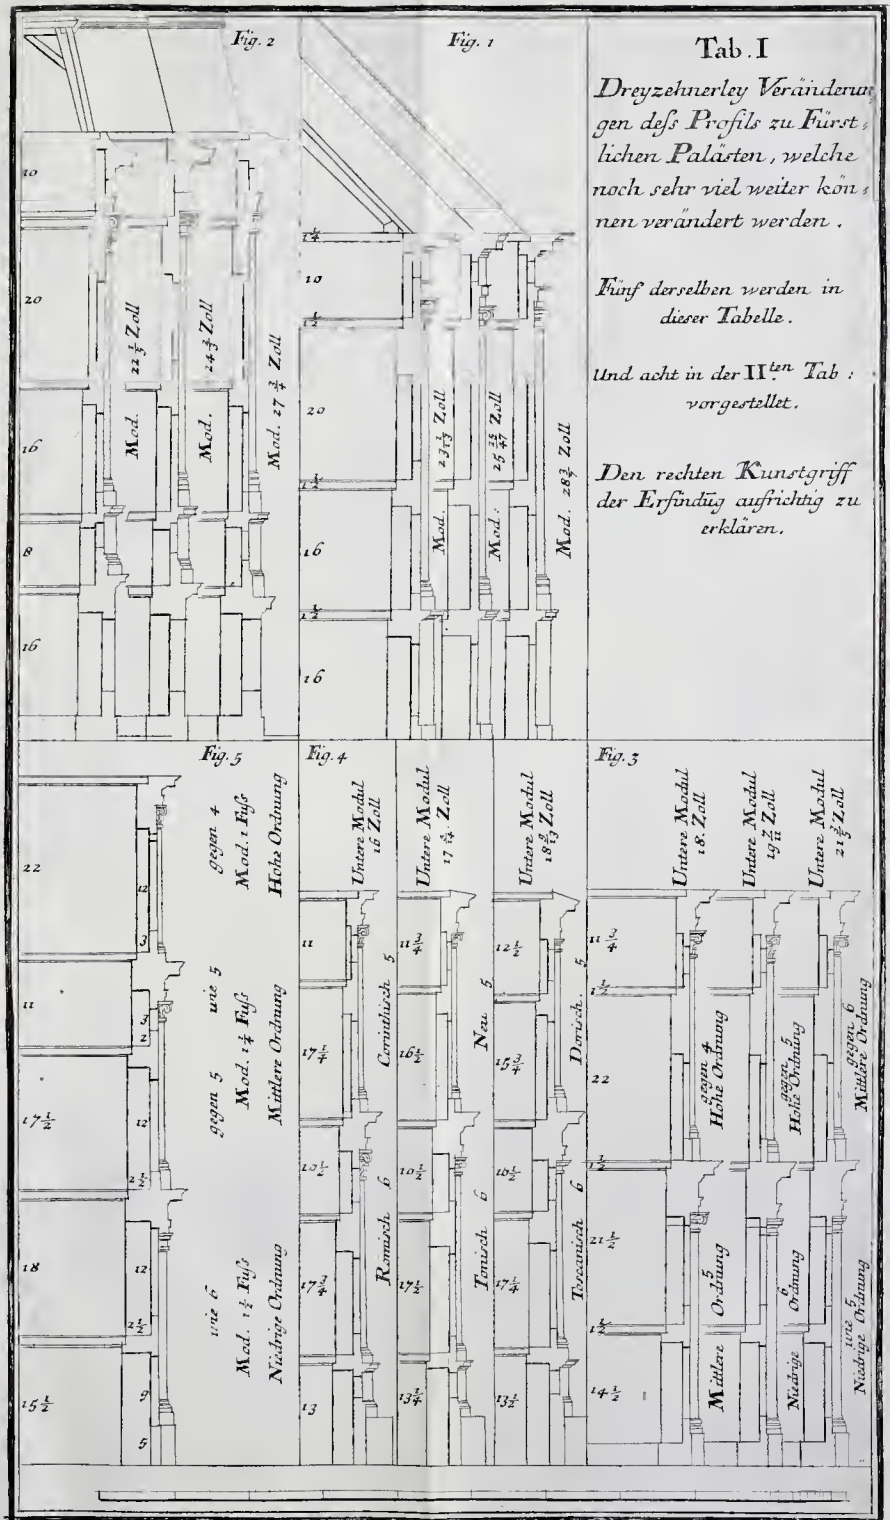 Fig. 2
10
20
16
8
16
Mod. 22 1/5 Zoll
Mod. 24 2/3 Zoll
Mod. 27 3/4 Zoll
Fig. 1
1 1/4
10
1 1/2
20
1 1/2
16
1 1/2
16
Mod. 23 1/13 Zoll
Mod: 25 25/47 Zoll
Mod. 28 2/7 Zoll
Tab. I
Dreyzehnerley Veränderun
gen deſs Profils zu Fürst,
lichen Palästen, welche
noch sehr viel weiter kön,
nen verändert werden.
Fünf derselben werden in
dieser Tabelle.
Und acht in der IIten Tab:
vorgestellet.
Den rechten Kunstgriff
der Erfindūg aufrichtig zu
erklären.
Fig. 5
22
12
3
11
3
2
17 1/2
12
2 1/2
18
12
2 1/2
15 1/2
9
5
gegen 4
Mod. 1 Fuſs
Hohe Ordnung
gegen 5 wie 5
Mod. 1 1/4 Fuſs
Mittlere Ordnung
wie 6
Mod. 1 1/2 Fuſs
Niedrige Ordnung
Fig. 4
Untere Modul
16 Zoll
11
17 1/4
10 1/2
17 3/4
13
Corinthisch 5
Römisch 6
Untere Modul
17 Zoll
11 3/4
16 1/2
10 1/2
17 1/2
13 1/4
Neu 5
Ionisch 6
Untere Modul
18 Zoll
12 1/2
15 3/4
10 1/2
17 1/4
13 1/2
Dorisch. 5
Toscanisch 6
Fig. 3
Untere Modul
18. Zoll
Untere Modul
19 7/11 Zoll
Untere Modul
21 3/5 Zoll
11 3/4
1 1/2
22
1 1/2
21 1/2
1 1/2
14 1/2
gegen 4
Hohe Ordnung
gegen 5
Hohe Ordnung
gegen 6
Mittlere Ordnung
5
Mittlere Ordnung
6
Niedrige Ordnung
wie 5
Niedrige Ordnung